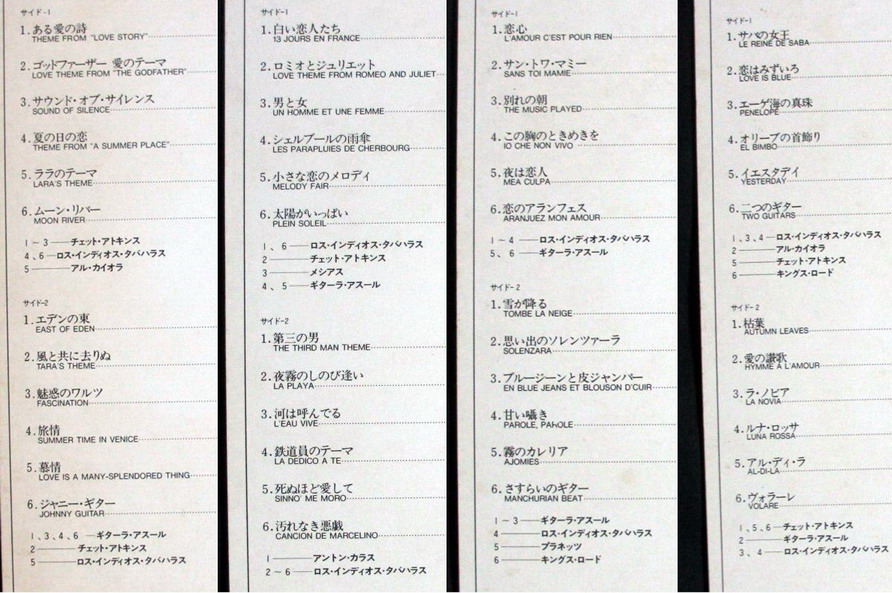 サイド-1
1.ある愛の詩
THEME FROM "LOVE STORY"
2.ゴッドファーザー 愛のテーマ
LOVE THEME FROM "THE GODFATHER"
3.サウンド・オブ・サイレンス
SOUND OF SILENCE
4.夏の日の恋
THEME FROM "A SUMMER PLACE"
5.ララのテーマ
LARA'S THEME
6.ムーン・リバー
MOON RIVER
1～3──チェット・アトキンス
4,6─ロス・インディオス・タバハラス
5───アル・カイオラ
サイド-2
1.エデンの東
EAST OF EDEN
2.風と共に去りぬ
TARA'S THEME
3.魅惑のワルツ
FASCINATION
4.旅情
SUMMER TIME IN VENICE
5.慕情
LOVE IS A MANY-SPLENDORED THING
6.ジャニー・ギター
JOHNNY GUITAR
1,3,4,6 ─ギターラ・アスール
2───チェット・アトキンス
5───ロス・インディオス・タバハラス
サイド-1
1.白い恋人たち
13 JOURS EN FRANCE
2.ロミオとジュリエット
LOVE THEME FROM ROMEO AND JULIET
3.男と女
UN HOMME ET UNE FEMME
4.シェルブールの雨傘
LES PARAPLUIES DE CHERBOURG
5.小さな恋のメロディ
MELODY FAIR
6.太陽がいっぱい
PLEIN SOLEIL
1、6──ロス・インディオス・タバハラス
2───チェット・アトキンス
3───メシアス
4、5──ギターラ・アスール
サイド-2
1.第三の男
THE THIRD MAN THEME
2.夜霧のしのび逢い
LA PLAYA
3.河は呼んでる
L'EAU VIVE
4.鉄道員のテーマ
LA DEDICO A TE
5.死ぬほど愛して
SINNO' ME MORO
6.汚れなき悪戯
CANCION DE MARCELINO
1───アントン・カラス
2～6──ロス・インディオス・タバハラス
サイド-1
1.恋心
L'AMOUR C'EST POUR RIEN
2.サン・トワ・マミー
SANS TOI MAMIE
3.別れの朝
THE MUSIC PLAYED
4.この胸のときめきを
IO CHE NON VIVO
5.夜は恋人
MEA CULPA
6.恋のアランフェス
ARANJUEZ MON AMOUR
1～4──ロス・インディオス・タバハラス
5、6──ギターラ・アスール
サイド-2
1.雪が降る
TOMBE LA NEIGE
2.思い出のソレンツァーラ
SOLENZARA
3.ブルージーンと皮ジャンパー
EN BLUE JEANS ET BLOUSON D'CUIR
4.甘い囁き
PAROLE, PAROLE
5.霧のカレリア
AJOMIES
6.さすらいのギター
MANCHURIAN BEAT
1～3──ギターラ・アスール
4───ロス・インディオス・タバハラス
5───プラネッツ
6───キングス・ロード
サイド-1
1.サバの女王
LE REINE DE SABA
2.恋はみずいろ
LOVE IS BLUE
3.エーゲ海の真珠
PENELOPE
4.オリーブの首飾り
EL BIMBO
5.イエスタデイ
YESTERDAY
6.二つのギター
TWO GUITARS
1,3,4──ロス・インディオス・タバハラス
2───アル・カイオラ
5───チェット・アトキンス
6───キングス・ロード
サイド-2
1.枯葉
AUTUMN LEAVES
2.愛の讃歌
HYMME A L'AMOUR
3.ラ・ノビア
LA NOVIA
4.ルナ・ロッサ
LUNA ROSSA
5.アル・ディ・ラ
AL-DI-LA
6.ヴォラーレ
VOLARE
1,5,6─チェット・アトキンス
2───ギターラ・アスール
3、4──ロス・インディオス・タバハラス